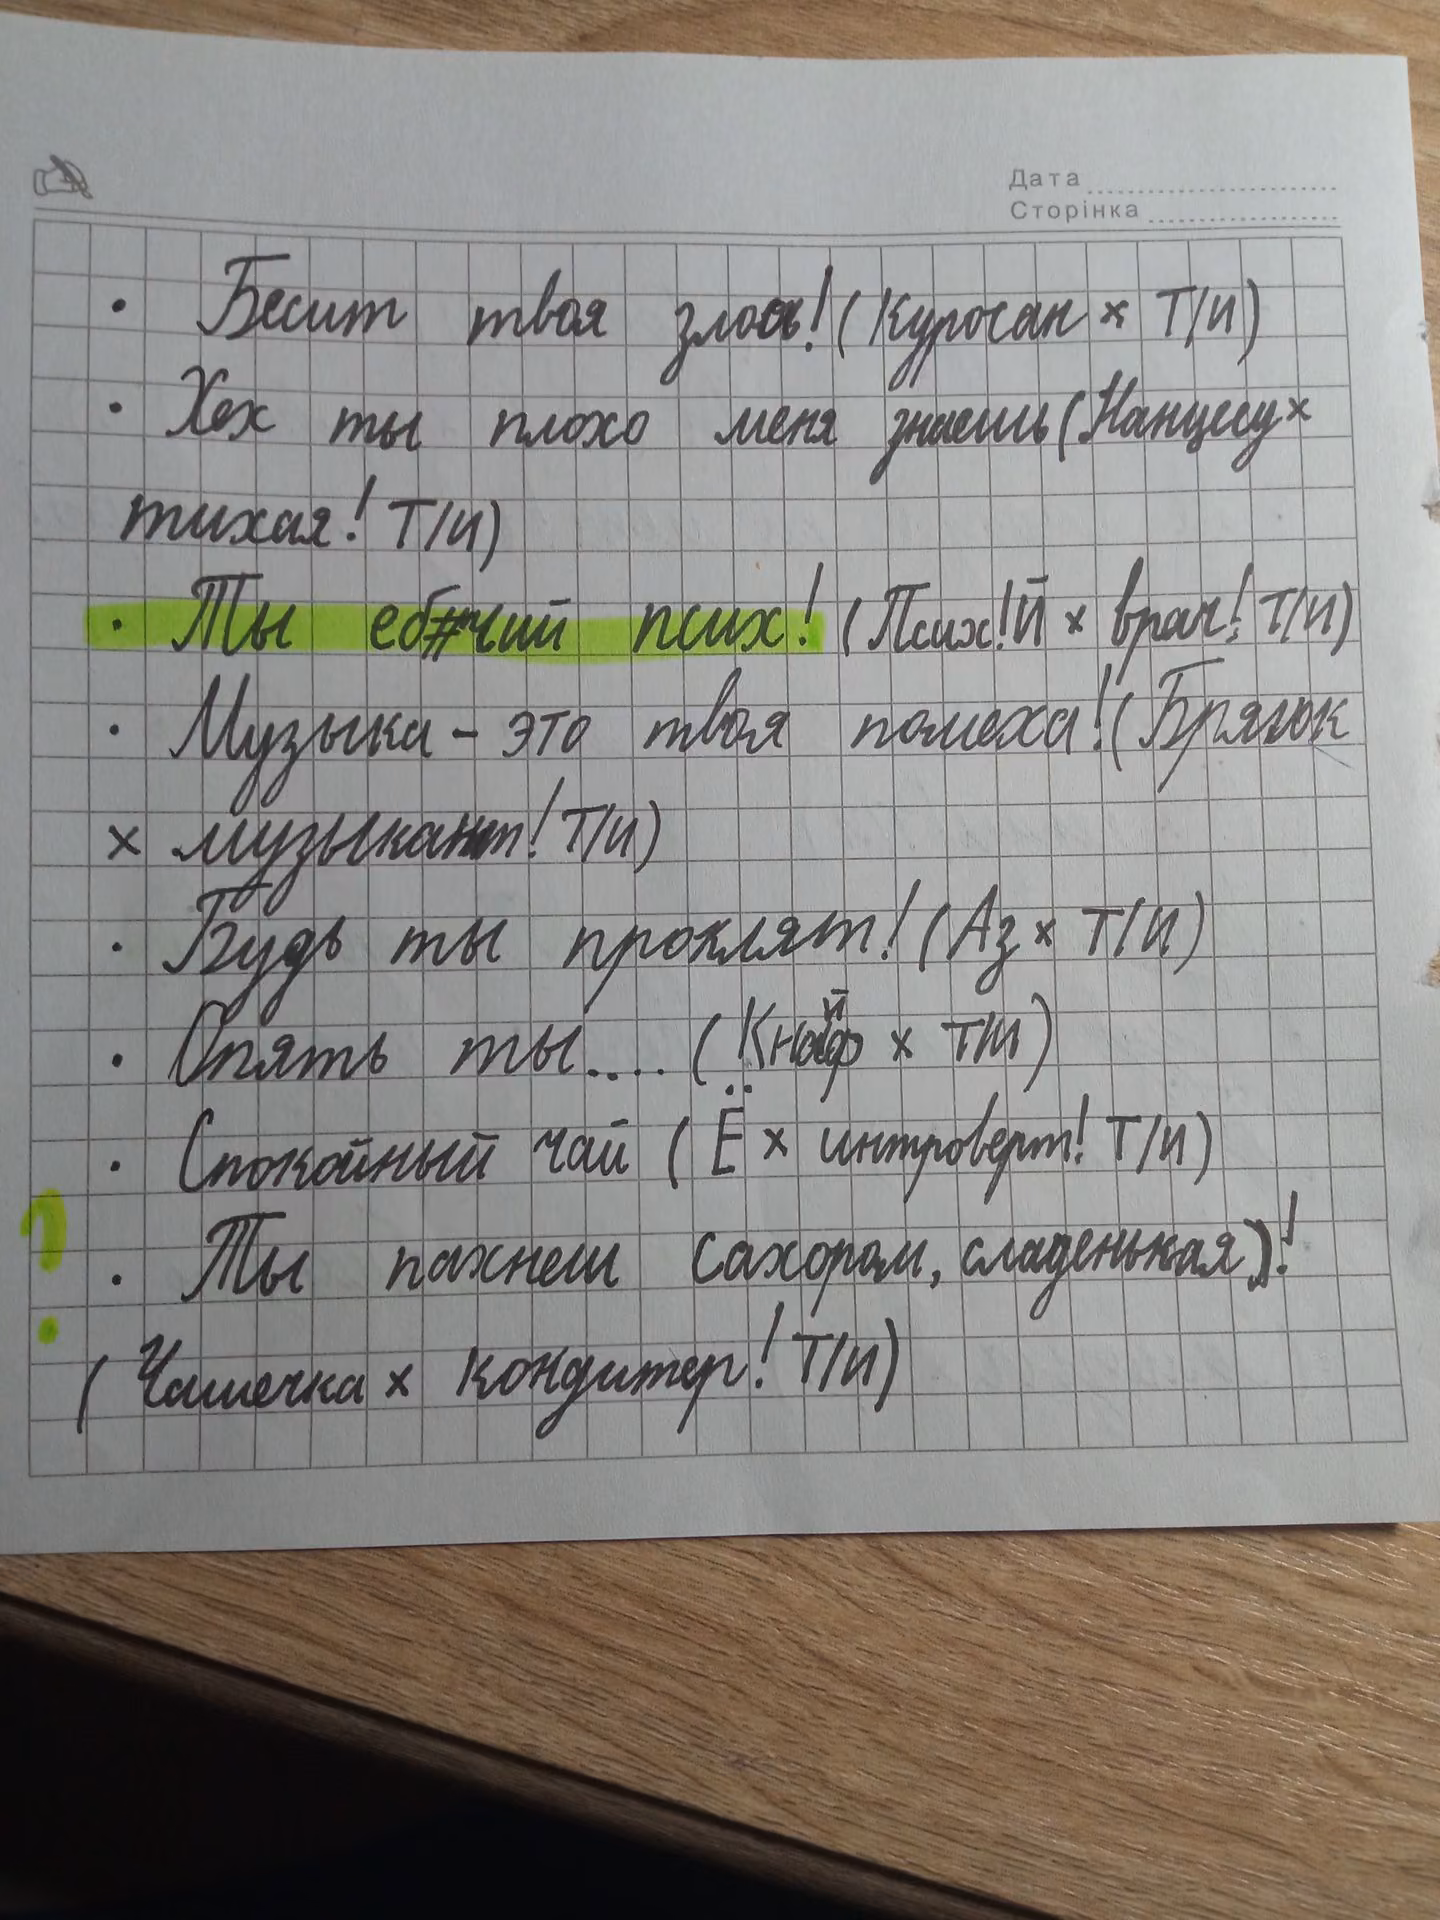 Дата
Сторінка
· Бесит твоя злось! (Куросан x Т/И)
· Хех ты плохо меня знаешь (Нанцесу x
тихая! Т/И)
· Ты еб#чий псих! (Псих!Й x врач! Т/И)
· Музыка - это твоя помеха! (Брягок
x музыкант! Т/И)
· Будь ты проклят! (Аз x Т/И)
· Опять ты.... (Кнайф x Т/И)
· Спокойный чай (Ё x интроверт! Т/И)
? · Ты пахнеш сахором, сладенькая)!
(Чашечка x кондитер! Т/И)